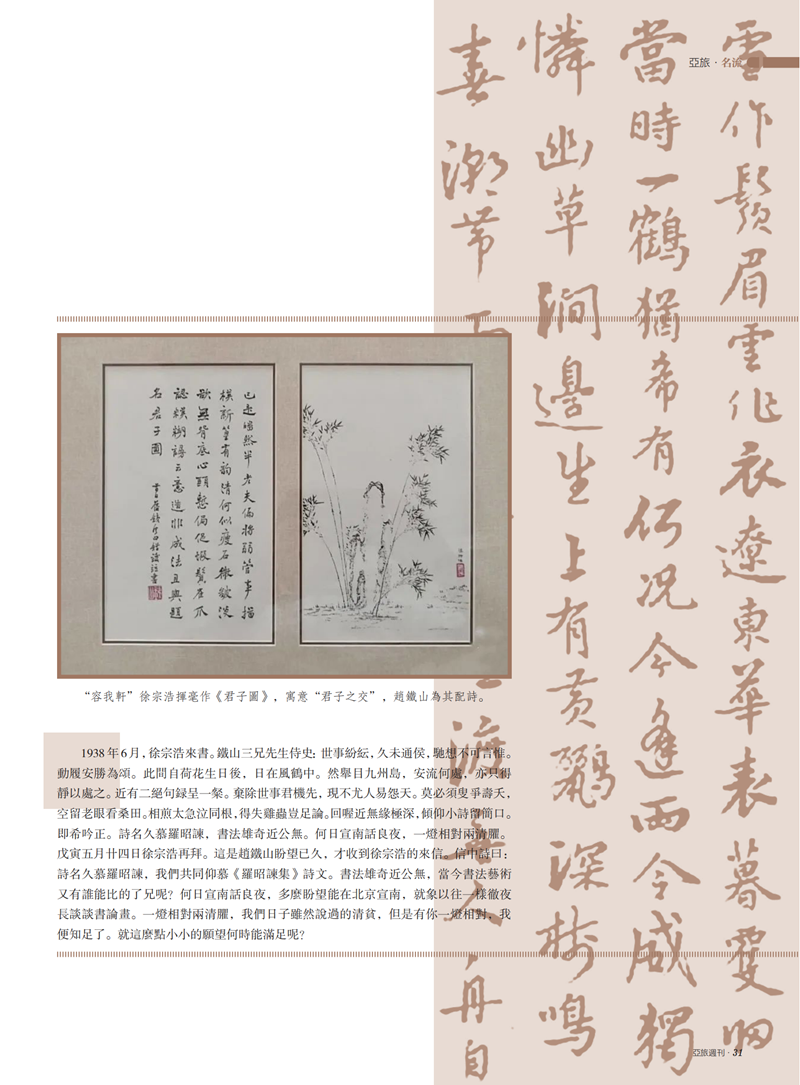 亞旅·名流
雪作鬚眉雲作衣遼東華表暮雙歸
當時一鶴猶希有何況今逢兩令威獨
憐幽草澗邊生上有黃鸝深樹鳴
春潮帶雨
渡無人舟自
模新篁有韵清何似瘦石
意造非成法且與題
名君子圖
“容我軒”徐宗浩揮毫作《君子圖》，寓意“君子之交”，趙鐵山為其配詩。
1938年6月，徐宗浩來書。鐵山三兄先生侍史：世事紛紜，久未通侯，馳想不可言惟。
動履安勝為頌。此間自荷花生日後，日在風鶴中。然舉目九州島，安流何處，亦只得
靜以處之。近有二絕句録呈一粲。棄除世事君機先，現不尤人易怨天。莫必須叟爭壽夭，
空留老眼看桑田。相煎太急泣同根，得失雞蟲豈足論。回喔近無緣極深，傾仰小詩留簡口。
即希吟正。詩名久慕羅昭諫，書法雄奇近公無。何日宣南話良夜，一燈相對兩清臞。
戊寅五月廿四日徐宗浩再拜。這是趙鐵山盼望已久，才收到徐宗浩的來信。信中詩曰：
詩名久慕羅昭諫，我們共同仰慕《羅昭諫集》詩文。書法雄奇近公無，當今書法藝術
又有誰能比的了兄呢？何日宣南話良夜，多麼盼望能在北京宣南，就象以往一樣徹夜
長談談書論畫。一燈相對兩清臞，我們日子雖然說過的清貧，但是有你一燈相對，我
便知足了。就這麼點小小的願望何時能滿足呢？
亞旅週刊·31